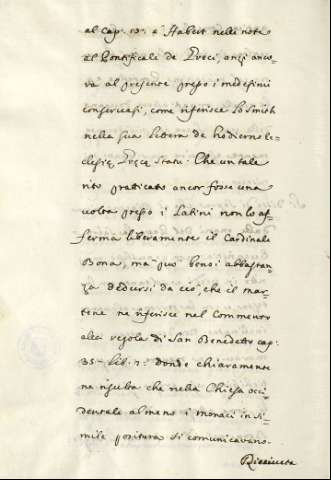 al cap. 13. e Habert nelle note
al Pontificale de Greci, anzi anco-
ra al presente presso i medesimi
conservasi, come riferisce lo Smith
nella sua lettera de hodierno Ec-
clesię Gręcę Statu. Che un tale
rito praticato ancor fosse una
volta presso i Latini non lo af-
ferma liberamente il Cardinale
Bona, ma può bensi abbastan-
za dedursi da ciò, che il Mar-
tene ne riferisce nel Commento
alla regola di San Benedetto cap.
35. lib. donde chiaramente
ne risulta che nella Chiesa occi-
dentale almeno i monaci in si-
mile positura si comunicavano.